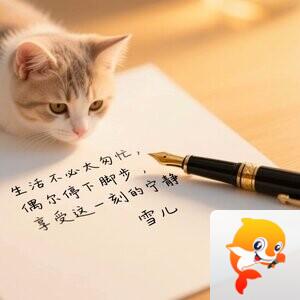 生活不必太匆忙，
偶尔停下脚步，
享受这一刻的宁静
雪儿